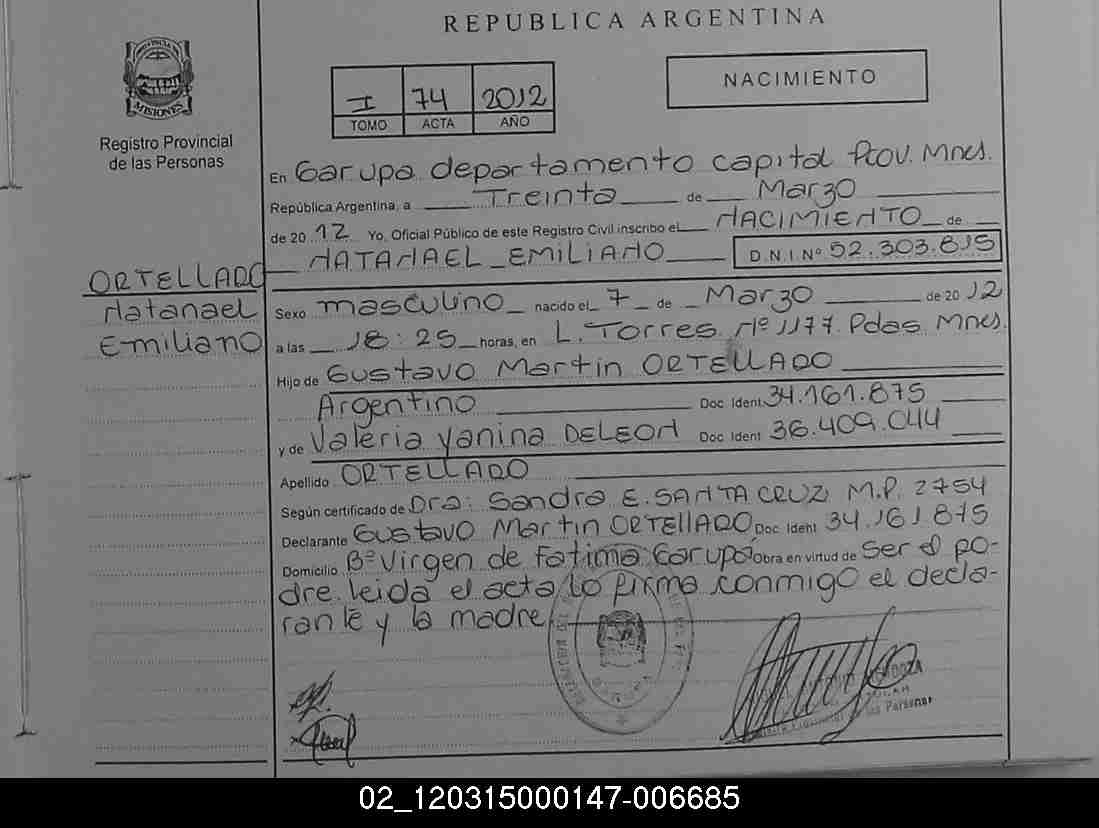 REPUBLICA ARGENTINA
PROVINCIA
MISIONES
Registro Provincial
de las Personas
I 74 2012
TOMO ACTA AÑO
NACIMIENTO
En Garupa departamento capital Prov. Mnes.
República Argentina, a Treinta de Marzo
de 20 12 Yo, Oficial Público de este Registro Civil inscribo el NACIMIENTO de
NATANAEL EMILIANO D.N.I. Nº 52.303.815
ORTELLADO
Natanael
Emiliano
Sexo masculino nacido el 7 de Marzo de 2012
a las 18:25 horas, en L. Torres Nº 1177. Pdas. Mnes.
Hijo de Gustavo Martin ORTELLADO
Argentino Doc Ident 34.161.875
y de Valeria Yanina DELEON Doc Ident 36.409.044
Apellido ORTELLADO
Según certificado de Dra: Sandra E. SANTA CRUZ M.P. 2754
Declarante Gustavo Martin ORTELLADO Doc Ident 34.161.875
Domicilio Bº Virgen de Fatima Garupá Obra en virtud de ser el pa-
dre. leida el acta la firma conmigo el decla-
rante y la madre
02_120315000147-006685